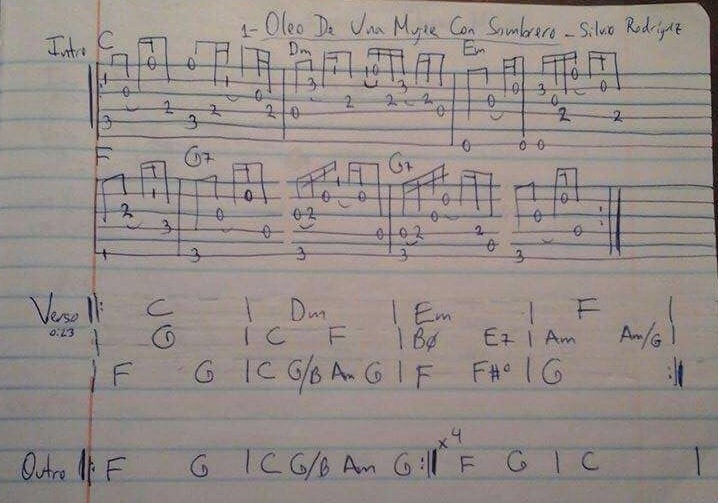 1- Oleo De Una Mujer Con Sombrero - Silvio Rodríguez
Intro C Dm Em
F G7 G7
Verso ||: C | Dm | Em | F |
0:23 | G | C F | BØ E7 | Am Am/G |
| F G | C G/B Am G | F F#° | G :||
Outro ||: F G | C G/B Am G :|| x4 F G | C |